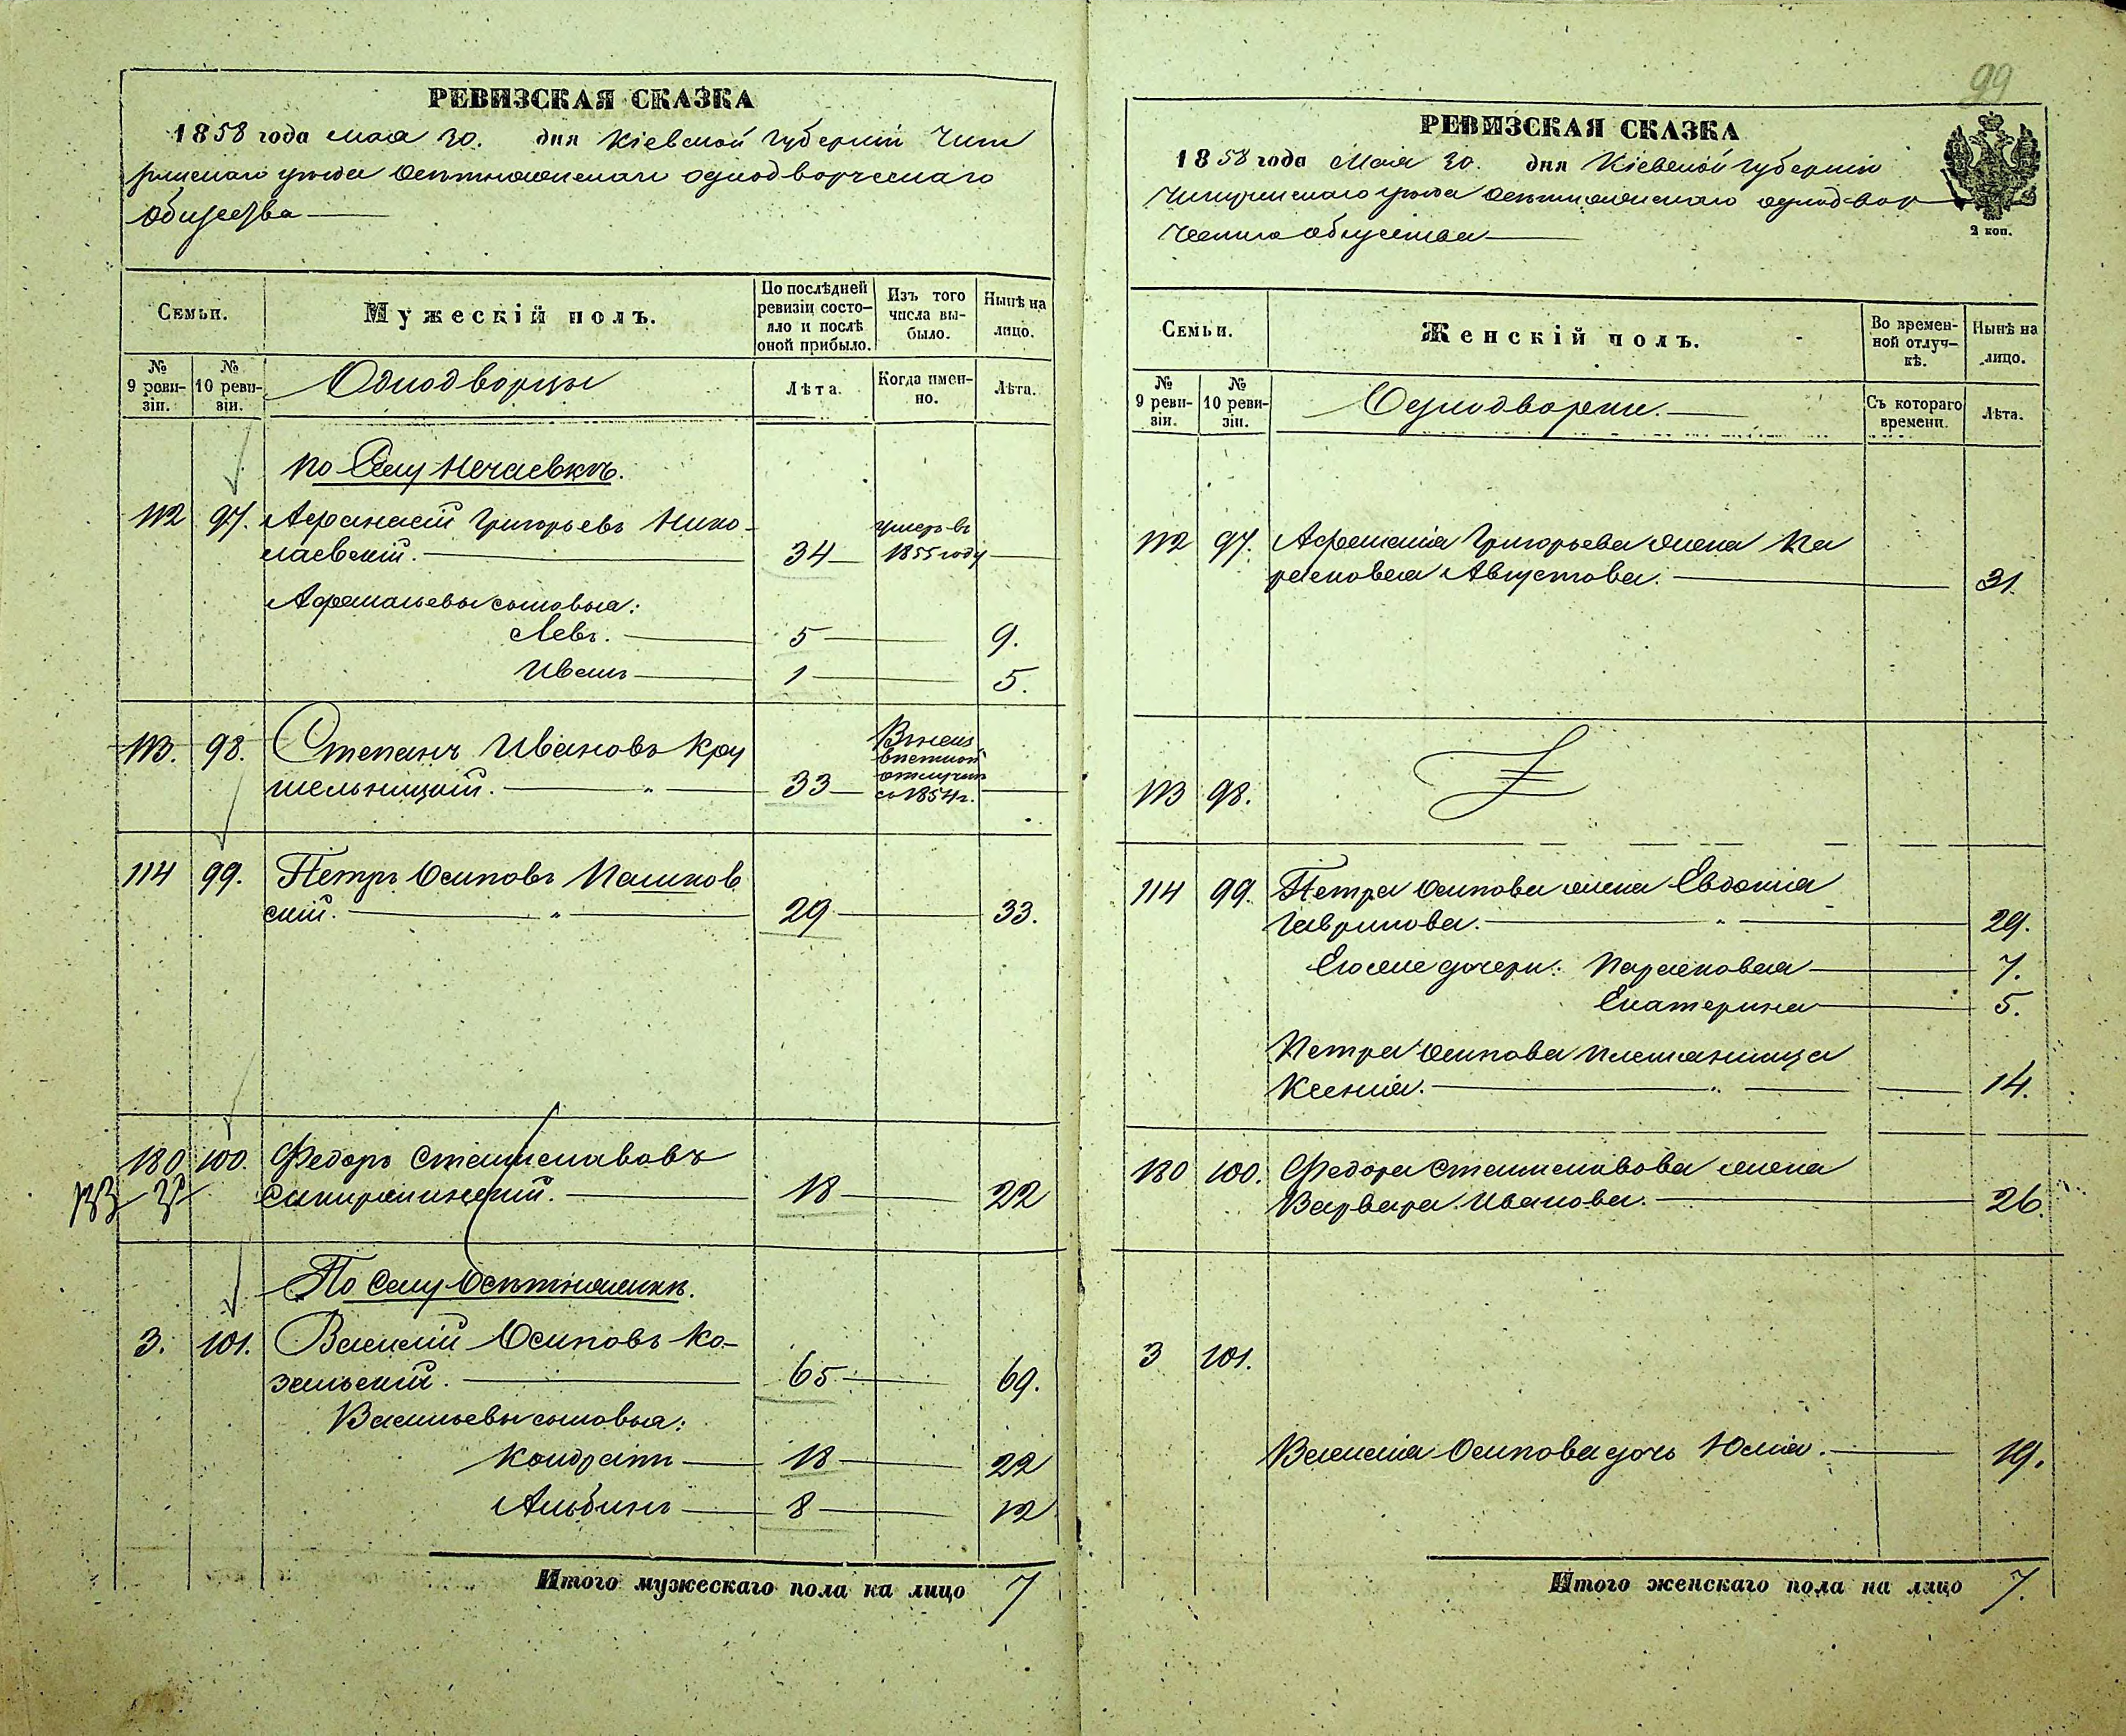 РЕВИЗСКАЯ СКАЗКА
1858 года мая 30. дня Кіевской Губерніи Чиги
ринскаго уѣзда Осѣтняжскаго однодворческаго
общества
Семьи.
Мужескій полъ.
По послѣдней ревизіи состояло и послѣ оной прибыло.
Изъ того числа выбыло.
Нынѣ на лицо.
№ 9 ревизіи.
№ 10 ревизіи.
Однодворцы
Лѣта.
Когда именно.
Лѣта.
по Селу Нечаевкѣ.
112 97. Афанасій Григорьевъ Нико-
лаевскій. 34 умеръ въ 1855 году
Афанасьевы сыновья:
Левъ. 5 9.
Иванъ 1 5.
113. 98. Степанъ Ивановъ Кру
шельницкій. 33 Въ неиз
вѣстной
отлучкѣ
съ 1854 г.
114 99. Петръ Осиповъ Пашков
скій. 29 33.
180 100. Федоръ Станиславовъ
18 22
По Селу Осѣтняжкѣ.
3. 101. Василій Осиповъ Ко-
зельскій. 65 69.
Васильевы сыновья:
Кондратъ 18 22
Альбинъ 8 12
Итого мужескаго пола на лицо 7
99
РЕВИЗСКАЯ СКАЗКА
1858 года Мая 30. дня Кіевской Губерніи
Чигиринскаго уѣзда Осѣтняжскаго однодвор
ческаго общества
2 коп.
Семьи.
Женскій полъ.
Во временной отлучкѣ.
Нынѣ на лицо.
№ 9 ревизіи.
№ 10 ревизіи.
Однодворки.
Съ котораго времени.
Лѣта.
112 97. Афанасія Григорьева жена Па
расковея Августова. 31.
113 98.
114 99. Петра Осипова жена Евдокія
Гаврилова. 29.
Его же дочери: Парасковея 7.
Екатерина 5.
Петра Осипова племянница
Ксенія. 14.
180 100. Федора Станиславова жена
Варвара Иванова. 26.
3 101.
Василія Осипова дочь Юлія. 19.
Итого женскаго пола на лицо 7.